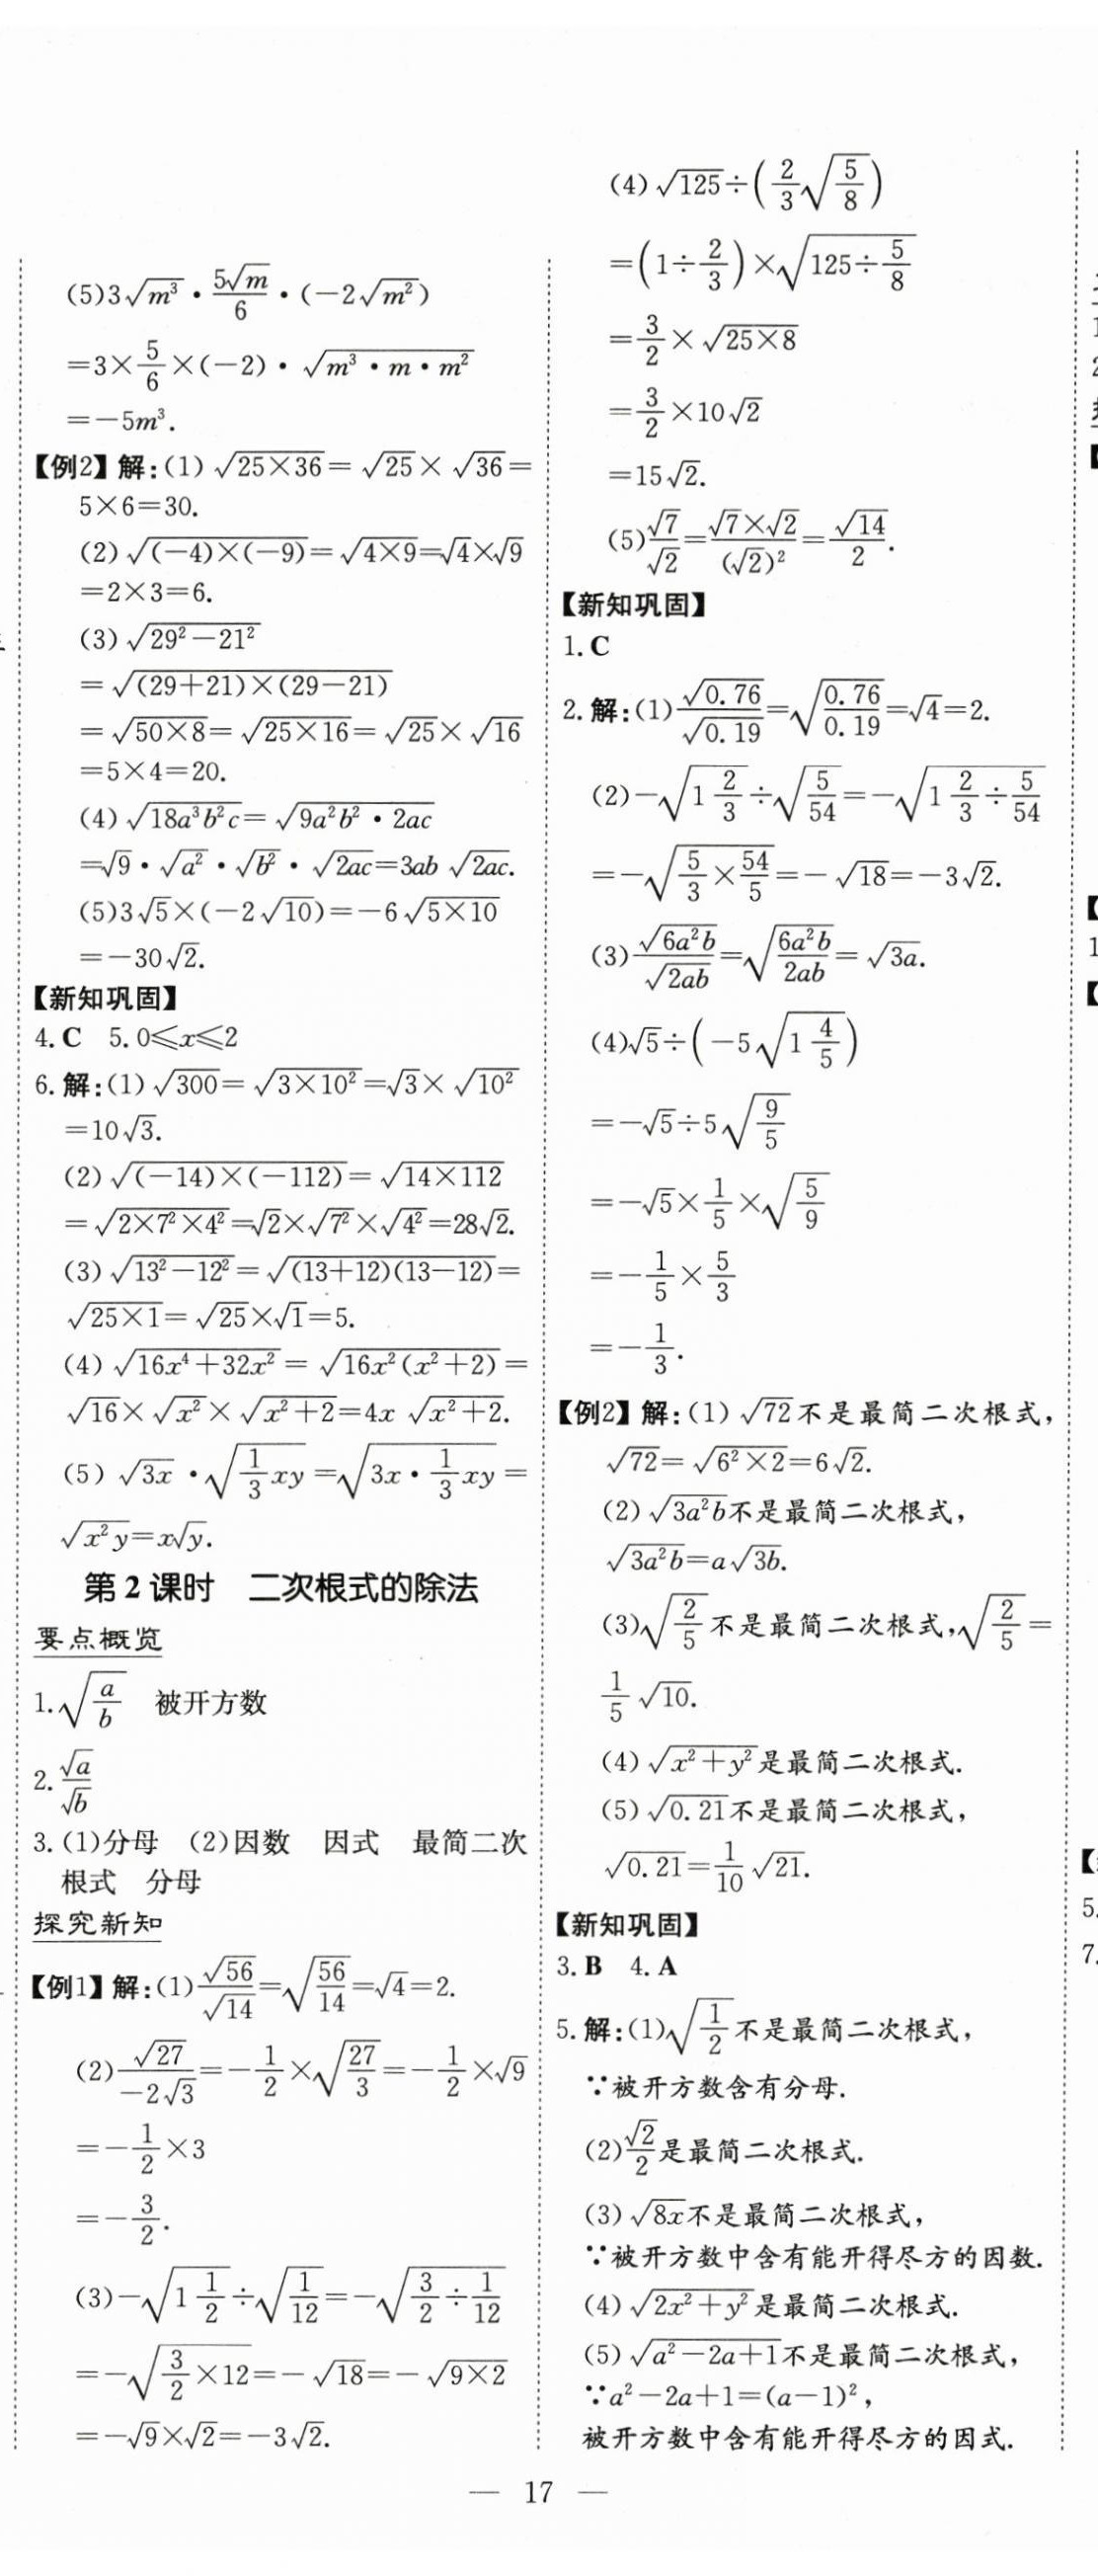 (5)3√(m³)·(5√m)/6·(-2√(m²))
=3×5/6×(-2)·√(m³·m·m²)
=-5m³.
【例2】解:(1)√(25×36)=√25×√36=
5×6=30.
(2)√((-4)×(-9))=√(4×9)=√4×√9
=2×3=6.
(3)√(29²-21²)
=√((29+21)×(29-21))
=√(50×8)=√(25×16)=√25×√16
=5×4=20.
(4)√(18a³b²c)=√(9a²b²·2ac)
=√9·√(a²)·√(b²)·√(2ac)=3ab√(2ac).
(5)3√5×(-2√10)=-6√(5×10)
=-30√2.
【新知巩固】
4.C 5.0≤x≤2
6.解:(1)√300=√(3×10²)=√3×√(10²)
=10√3.
(2)√((-14)×(-112))=√(14×112)
=√(2×7²×4²)=√2×√(7²)×√(4²)=28√2.
(3)√(13²-12²)=√((13+12)(13-12))=
√(25×1)=√25×√1=5.
(4)√(16x⁴+32x²)=√(16x²(x²+2))=
√16×√(x²)×√(x²+2)=4x√(x²+2).
(5)√(3x)·√(1/3 xy)=√(3x·1/3 xy)=
√(x²y)=x√y.
第2课时 二次根式的除法
要点概览
1.√(a/b) 被开方数
2.√a/√b
3.(1)分母 (2)因数 因式 最简二次
根式 分母
探究新知
【例1】解:(1)√56/√14=√(56/14)=√4=2.
(2)√27/(-2√3)=-1/2×√(27/3)=-1/2×√9
=-1/2×3
=-3/2.
(3)-√(1 1/2)÷√(1/12)=-√(3/2÷1/12)
=-√(3/2×12)=-√18=-√(9×2)
=-√9×√2=-3√2.
(4)√125÷(2/3√(5/8))
=(1÷2/3)×√(125÷5/8)
=3/2×√(25×8)
=3/2×10√2
=15√2.
(5)√7/√2=(√7×√2)/(√2)²=√14/2.
【新知巩固】
1.C
2.解:(1)√0.76/√0.19=√(0.76/0.19)=√4=2.
(2)-√(1 2/3)÷√(5/54)=-√(1 2/3÷5/54)
=-√(5/3×54/5)=-√18=-3√2.
(3)√(6a²b)/√(2ab)=√(6a²b/2ab)=√(3a).
(4)√5÷(-5√(1 4/5))
=-√5÷5√(9/5)
=-√5×1/5×√(5/9)
=-1/5×5/3
=-1/3.
【例2】解:(1)√72不是最简二次根式,
√72=√(6²×2)=6√2.
(2)√(3a²b)不是最简二次根式,
√(3a²b)=a√(3b).
(3)√(2/5)不是最简二次根式,√(2/5)=
1/5√10.
(4)√(x²+y²)是最简二次根式.
(5)√0.21不是最简二次根式,
√0.21=1/10√21.
【新知巩固】
3.B 4.A
5.解:(1)√(1/2)不是最简二次根式,
∵被开方数含有分母.
(2)√2/2是最简二次根式.
(3)√(8x)不是最简二次根式,
∵被开方数中含有能开得尽方的因数.
(4)√(2x²+y²)是最简二次根式.
(5)√(a²-2a+1)不是最简二次根式,
∵a²-2a+1=(a-1)²,
被开方数中含有能开得尽方的因式.
— 17 —